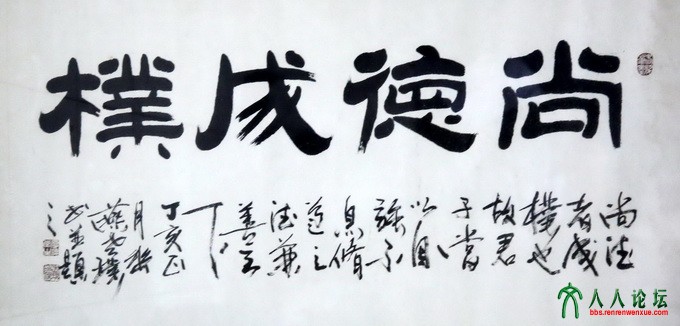 尚德成樸
尚德
者成
樸也
故君
子當
以自
強不
息脩
道
德兼
善天
下
丁亥正
月
燕
書並題
之
人人论坛
bbs.renrenwenxue.com